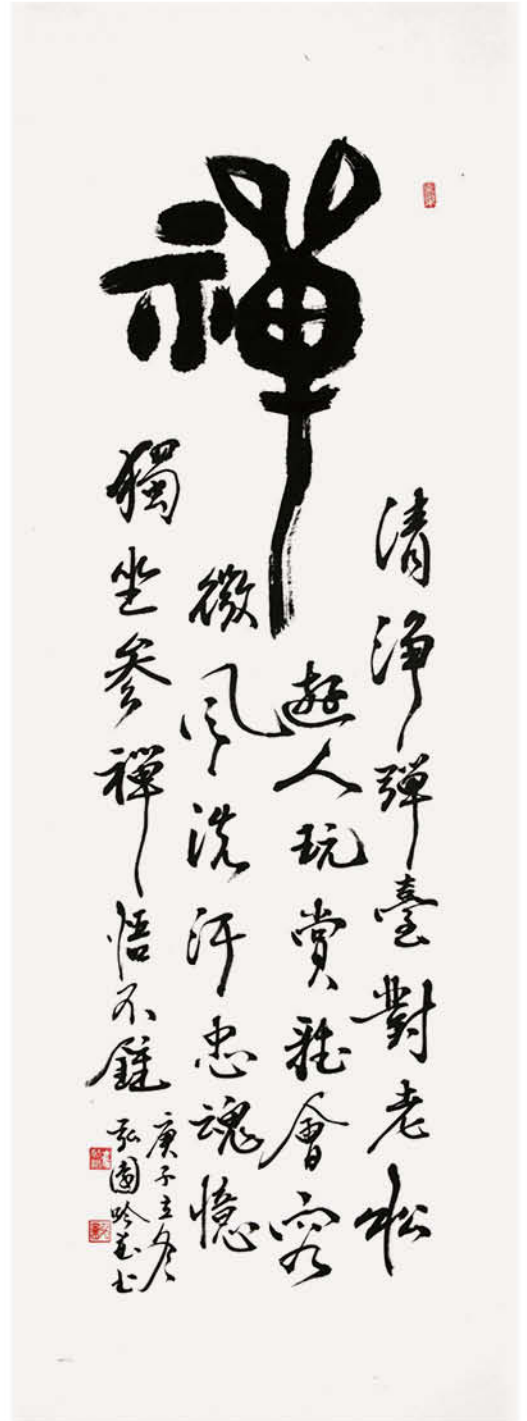 禪
清淨彈臺對老松
遊人玩賞難會容
微風洗汗忠魂憶
獨坐參禪悟不鍾
庚子立冬
弘園吟并書